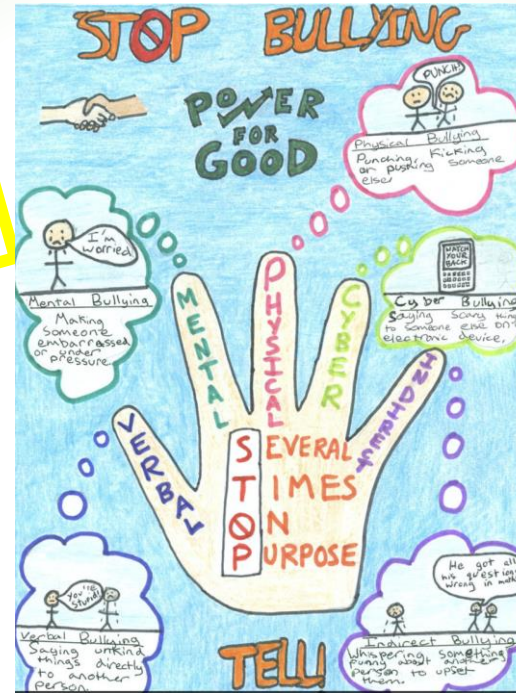 STOP BULLYING
POWER
FOR
GOOD
PUNCH!
Physical Bullying
Punching, Kicking
or pushing someone
else
I'm
worried
Mental Bullying
Making
someone
embarrassed
or under
pressure
WATCH
YOUR
BACK
Cyber Bullying
Saying Scary thing
to someone else on
electronic device,
VERBAL
MENTAL
PHYSICAL
CYBER
INDIRECT
SEVERAL
TIMES
ON
PURPOSE
You're
stupid!
Verbal Bullying
Saying unkind
things directly
to another
person.
He got all
his questions
wrong in math
Indirect Bullying
Whispering something
funny about another
person to upset
them.
TELL!